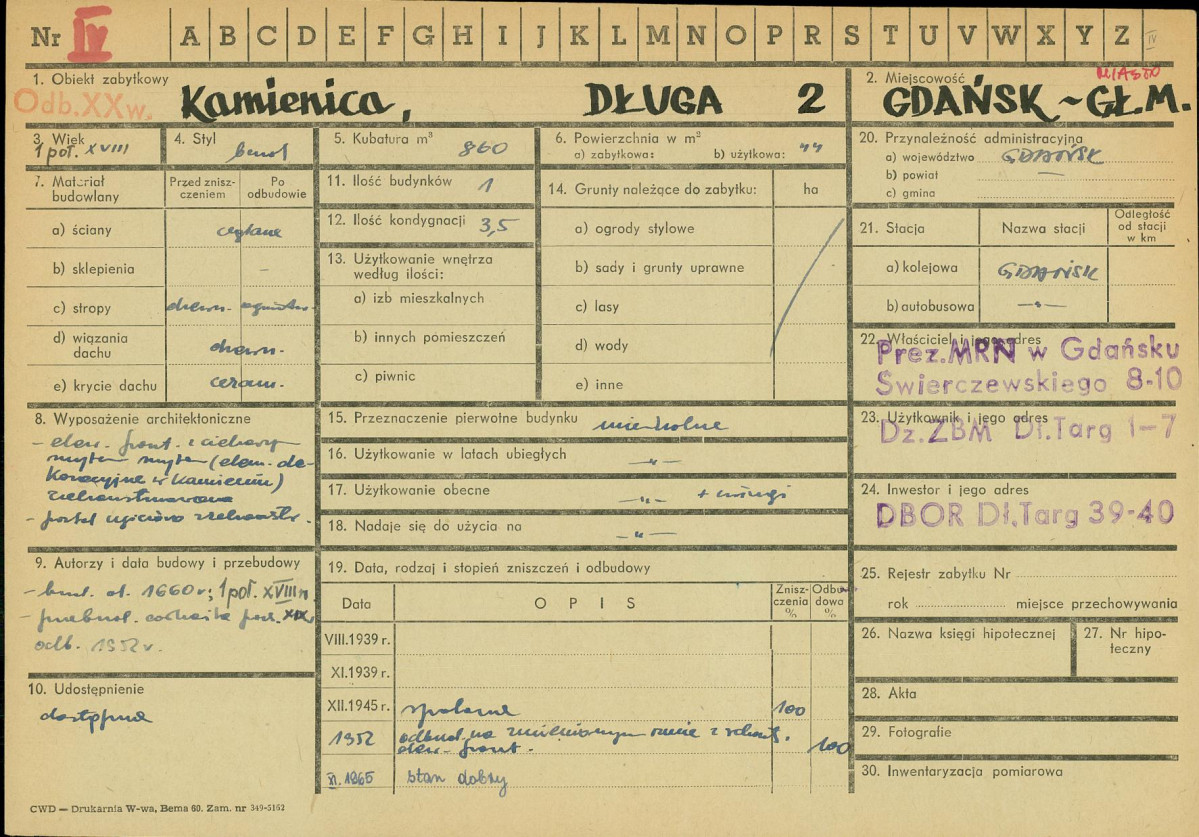 Nr IV A B C D E F G H I J K L M N O P R S T U V W X Y Z IV
1. Obiekt zabytkowy
Odb. XX w.
Kamienica, DŁUGA 2
2. Miejscowość MIASTO
GDAŃSK ~ GŁ. M.
3. Wiek
1 poł. XVIII
4. Styl
5. Kubatura m³ 860
6. Powierzchnia w m²
a) zabytkowa: b) użytkowa:
7. Materiał budowlany
Przed zniszczeniem
Po odbudowie
a) ściany ceglane
b) sklepienia –
c) stropy drewn.
d) wiązania dachu drewn.
e) krycie dachu ceram.
8. Wyposażenie architektoniczne
- elew. front. z
(elem. de-
koracyjne w kamieniu)
zrekonstruowana
- portal
9. Autorzy i data budowy i przebudowy
- bud. ok. 1660 r; 1 poł. XVIII w.
- przebud. XIX w.
odb. 1952 r.
10. Udostępnienie
dostępne
11. Ilość budynków 1
12. Ilość kondygnacji 3,5
13. Użytkowanie wnętrza według ilości:
a) izb mieszkalnych
b) innych pomieszczeń
c) piwnic
14. Grunty należące do zabytku: ha
a) ogrody stylowe
b) sady i grunty uprawne
c) lasy
d) wody
e) inne
15. Przeznaczenie pierwotne budynku mieszkalne
16. Użytkowanie w latach ubiegłych –"–
17. Użytkowanie obecne –"– + usługi
18. Nadaje się do użycia na –"–
19. Data, rodzaj i stopień zniszczeń i odbudowy
Data OPIS Zniszczenia % Odbudowa %
VIII.1939 r.
XI.1939 r.
XII.1945 r. spalone 100
1952 odbud. na zmienionym rzucie z
elew. front. 100
XI. 1965 stan dobry
20. Przynależność administracyjna
a) województwo GDAŃSK
b) powiat —
c) gmina
21. Stacja Nazwa stacji Odległość od stacji w km
a) kolejowa GDAŃSK
b) autobusowa –"–
22. Właściciel i jego adres
Prez. MRN w Gdańsku
Świerczewskiego 8-10
23. Użytkownik i jego adres
Dz. ZBM Dł. Targ 1-7
24. Inwestor i jego adres
DBOR Dł. Targ 39-40
25. Rejestr zabytku Nr
rok miejsce przechowywania
26. Nazwa księgi hipotecznej
27. Nr hipoteczny
28. Akta
29. Fotografie
30. Inwentaryzacja pomiarowa
CWD — Drukarnia W-wa, Bema 60. Zam. nr 349-5162